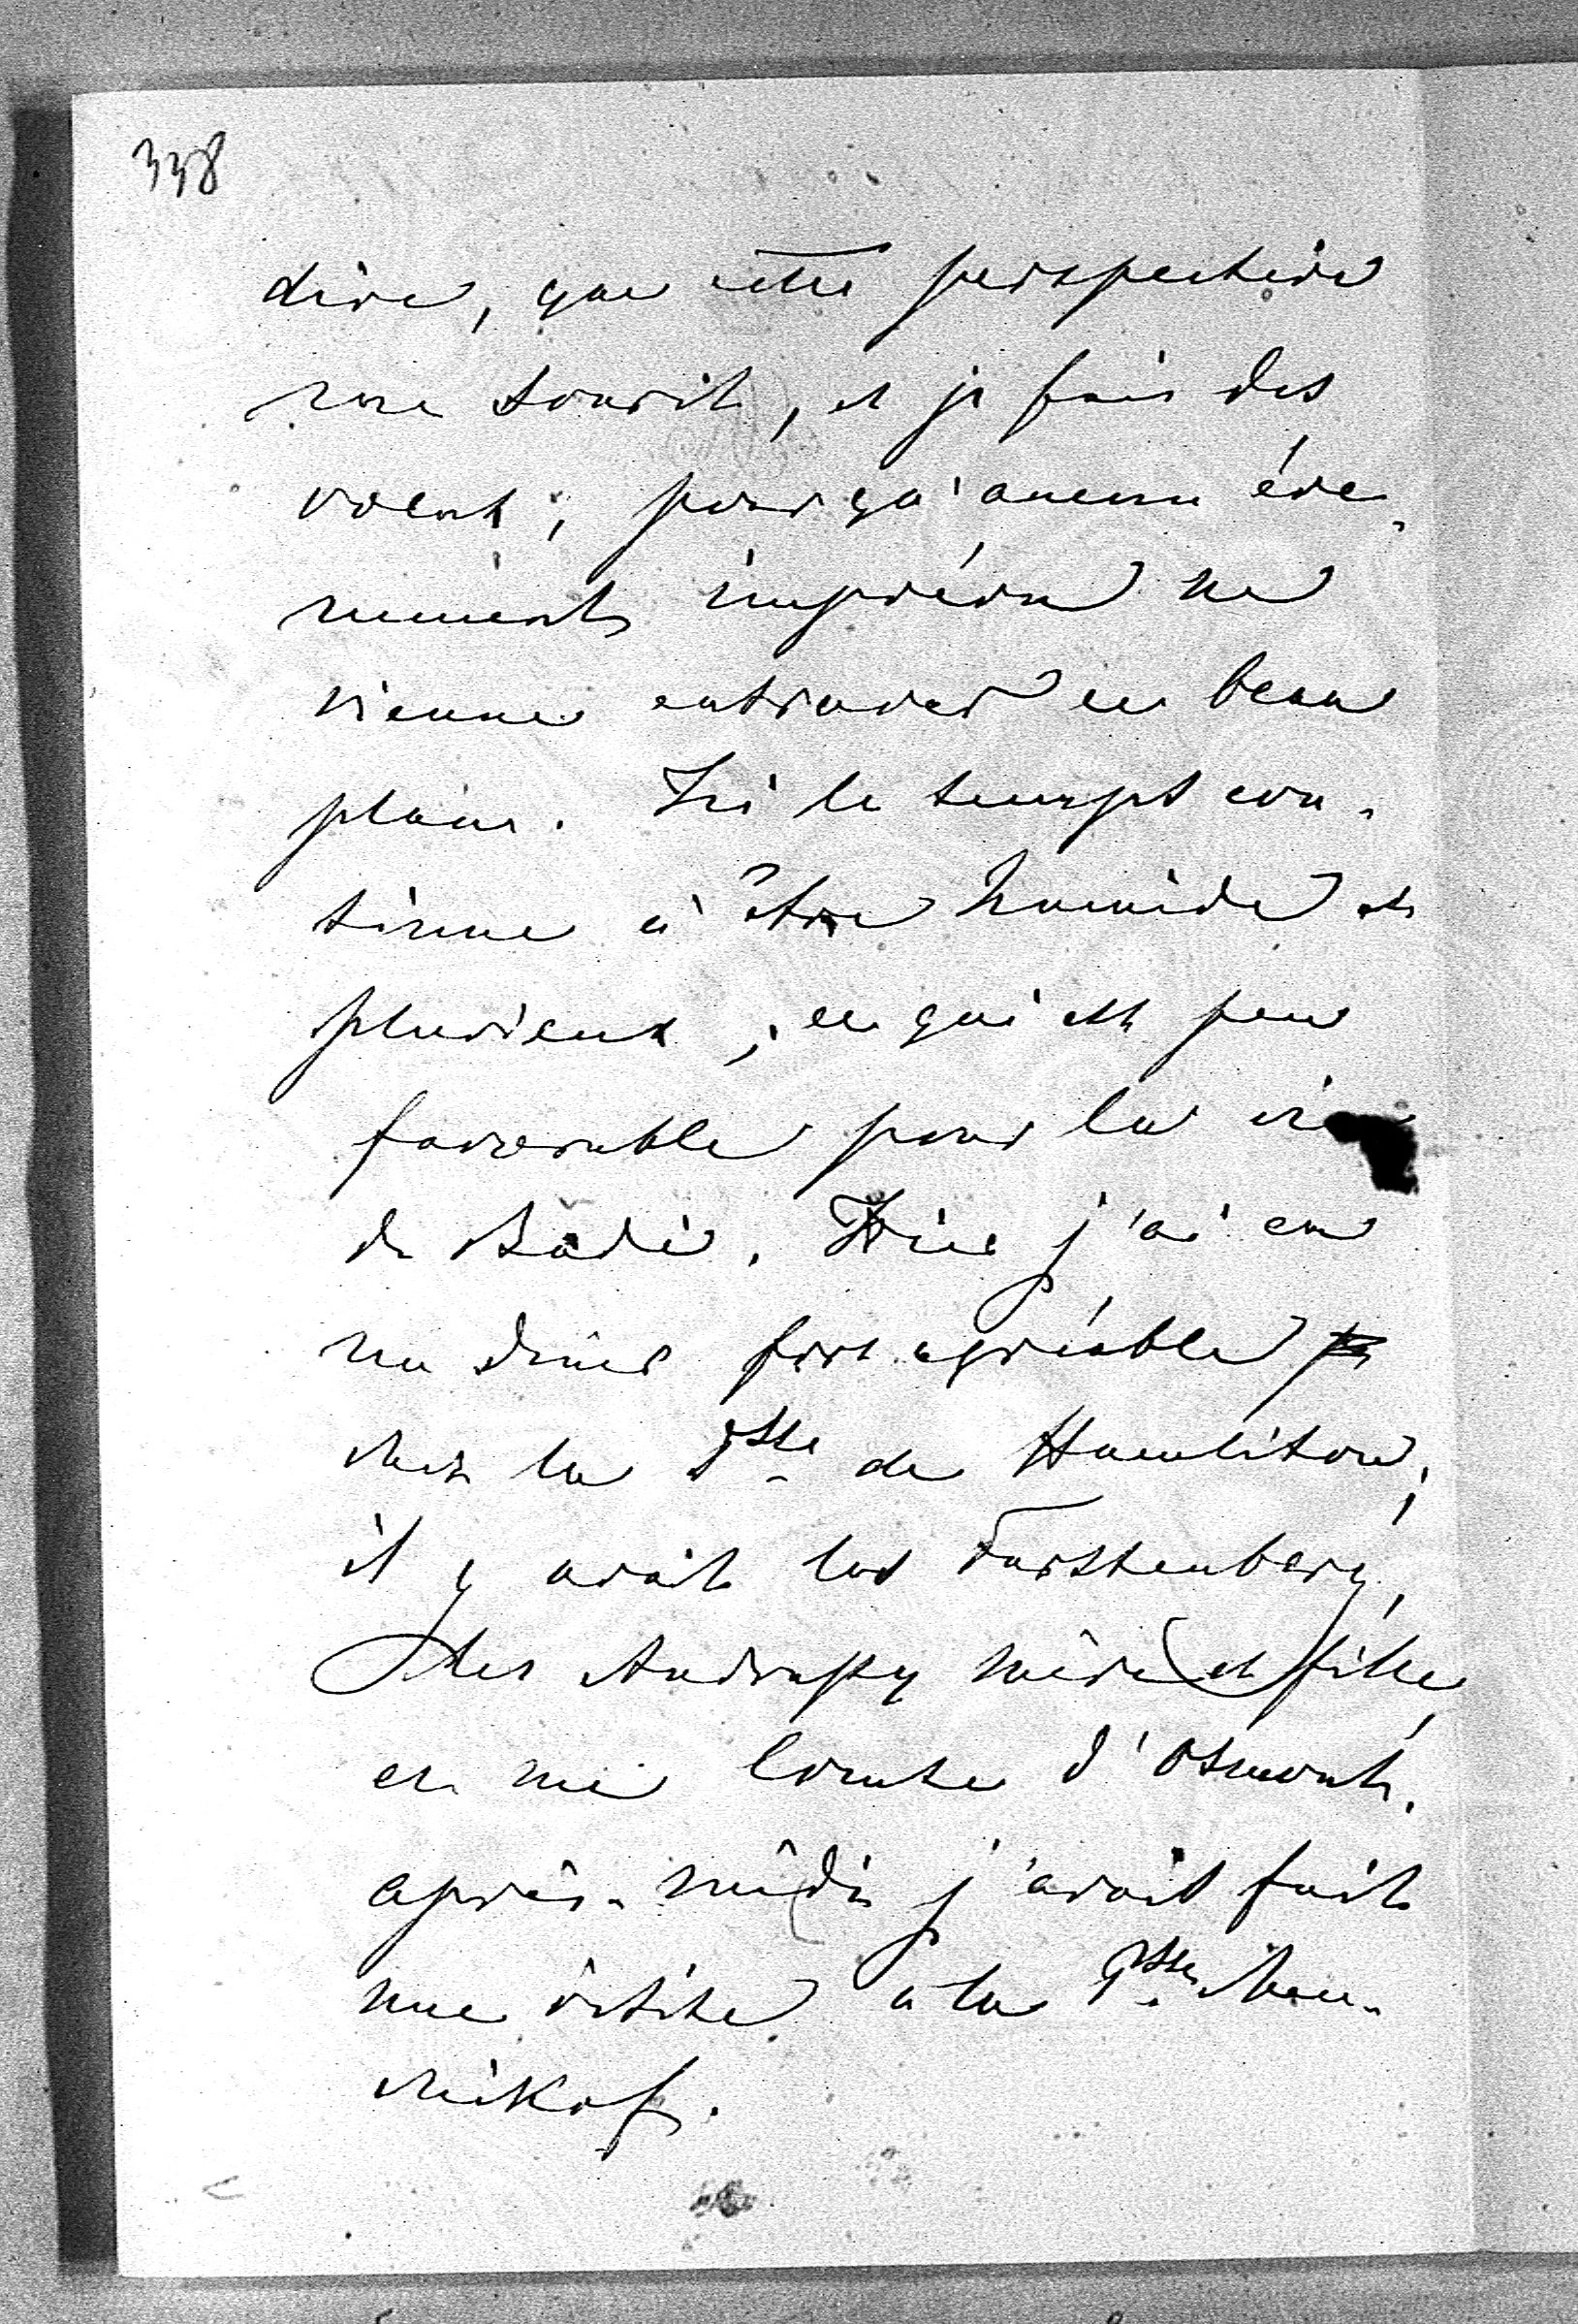 338
dire, que cette perspective
me sourit, et je fais des
voeux, pour qu'aucun éve-
nement imprévu ne
vienne entraver ce beau
plan. Ici le temps con-
tinue à être humide et
pluvieux, ce qui est peu
favorable pour la vie
de Bade. Hier j'ai eu
un diner fort agréable
chez la Psse de Hamilton,
il y avait les Furstenberg,
les Andrassy mère et fille,
et me Comte d'Osmont.
après-midi j'avais fait
une visite à la Psse Men-
chikoff.